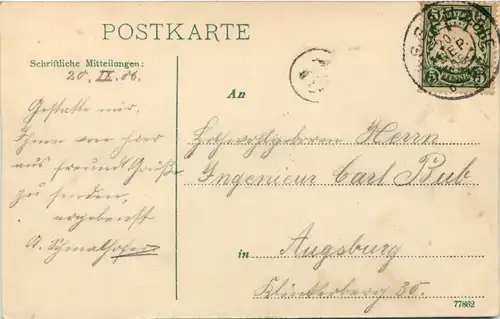 POSTKARTE
Schriftliche Mitteilungen:
20. IX. 06.
Gestatte mir,
Ihnen von hier
aus freundl. Grüße
zu senden,
ergebenst
A. Schmalhofer
An
Hochwohlgeboren Herrn
Ingenieur Carl Bub
in Augsburg
Klinkerberg 30.
77862
5 PFENNIG 5
20 SEP.